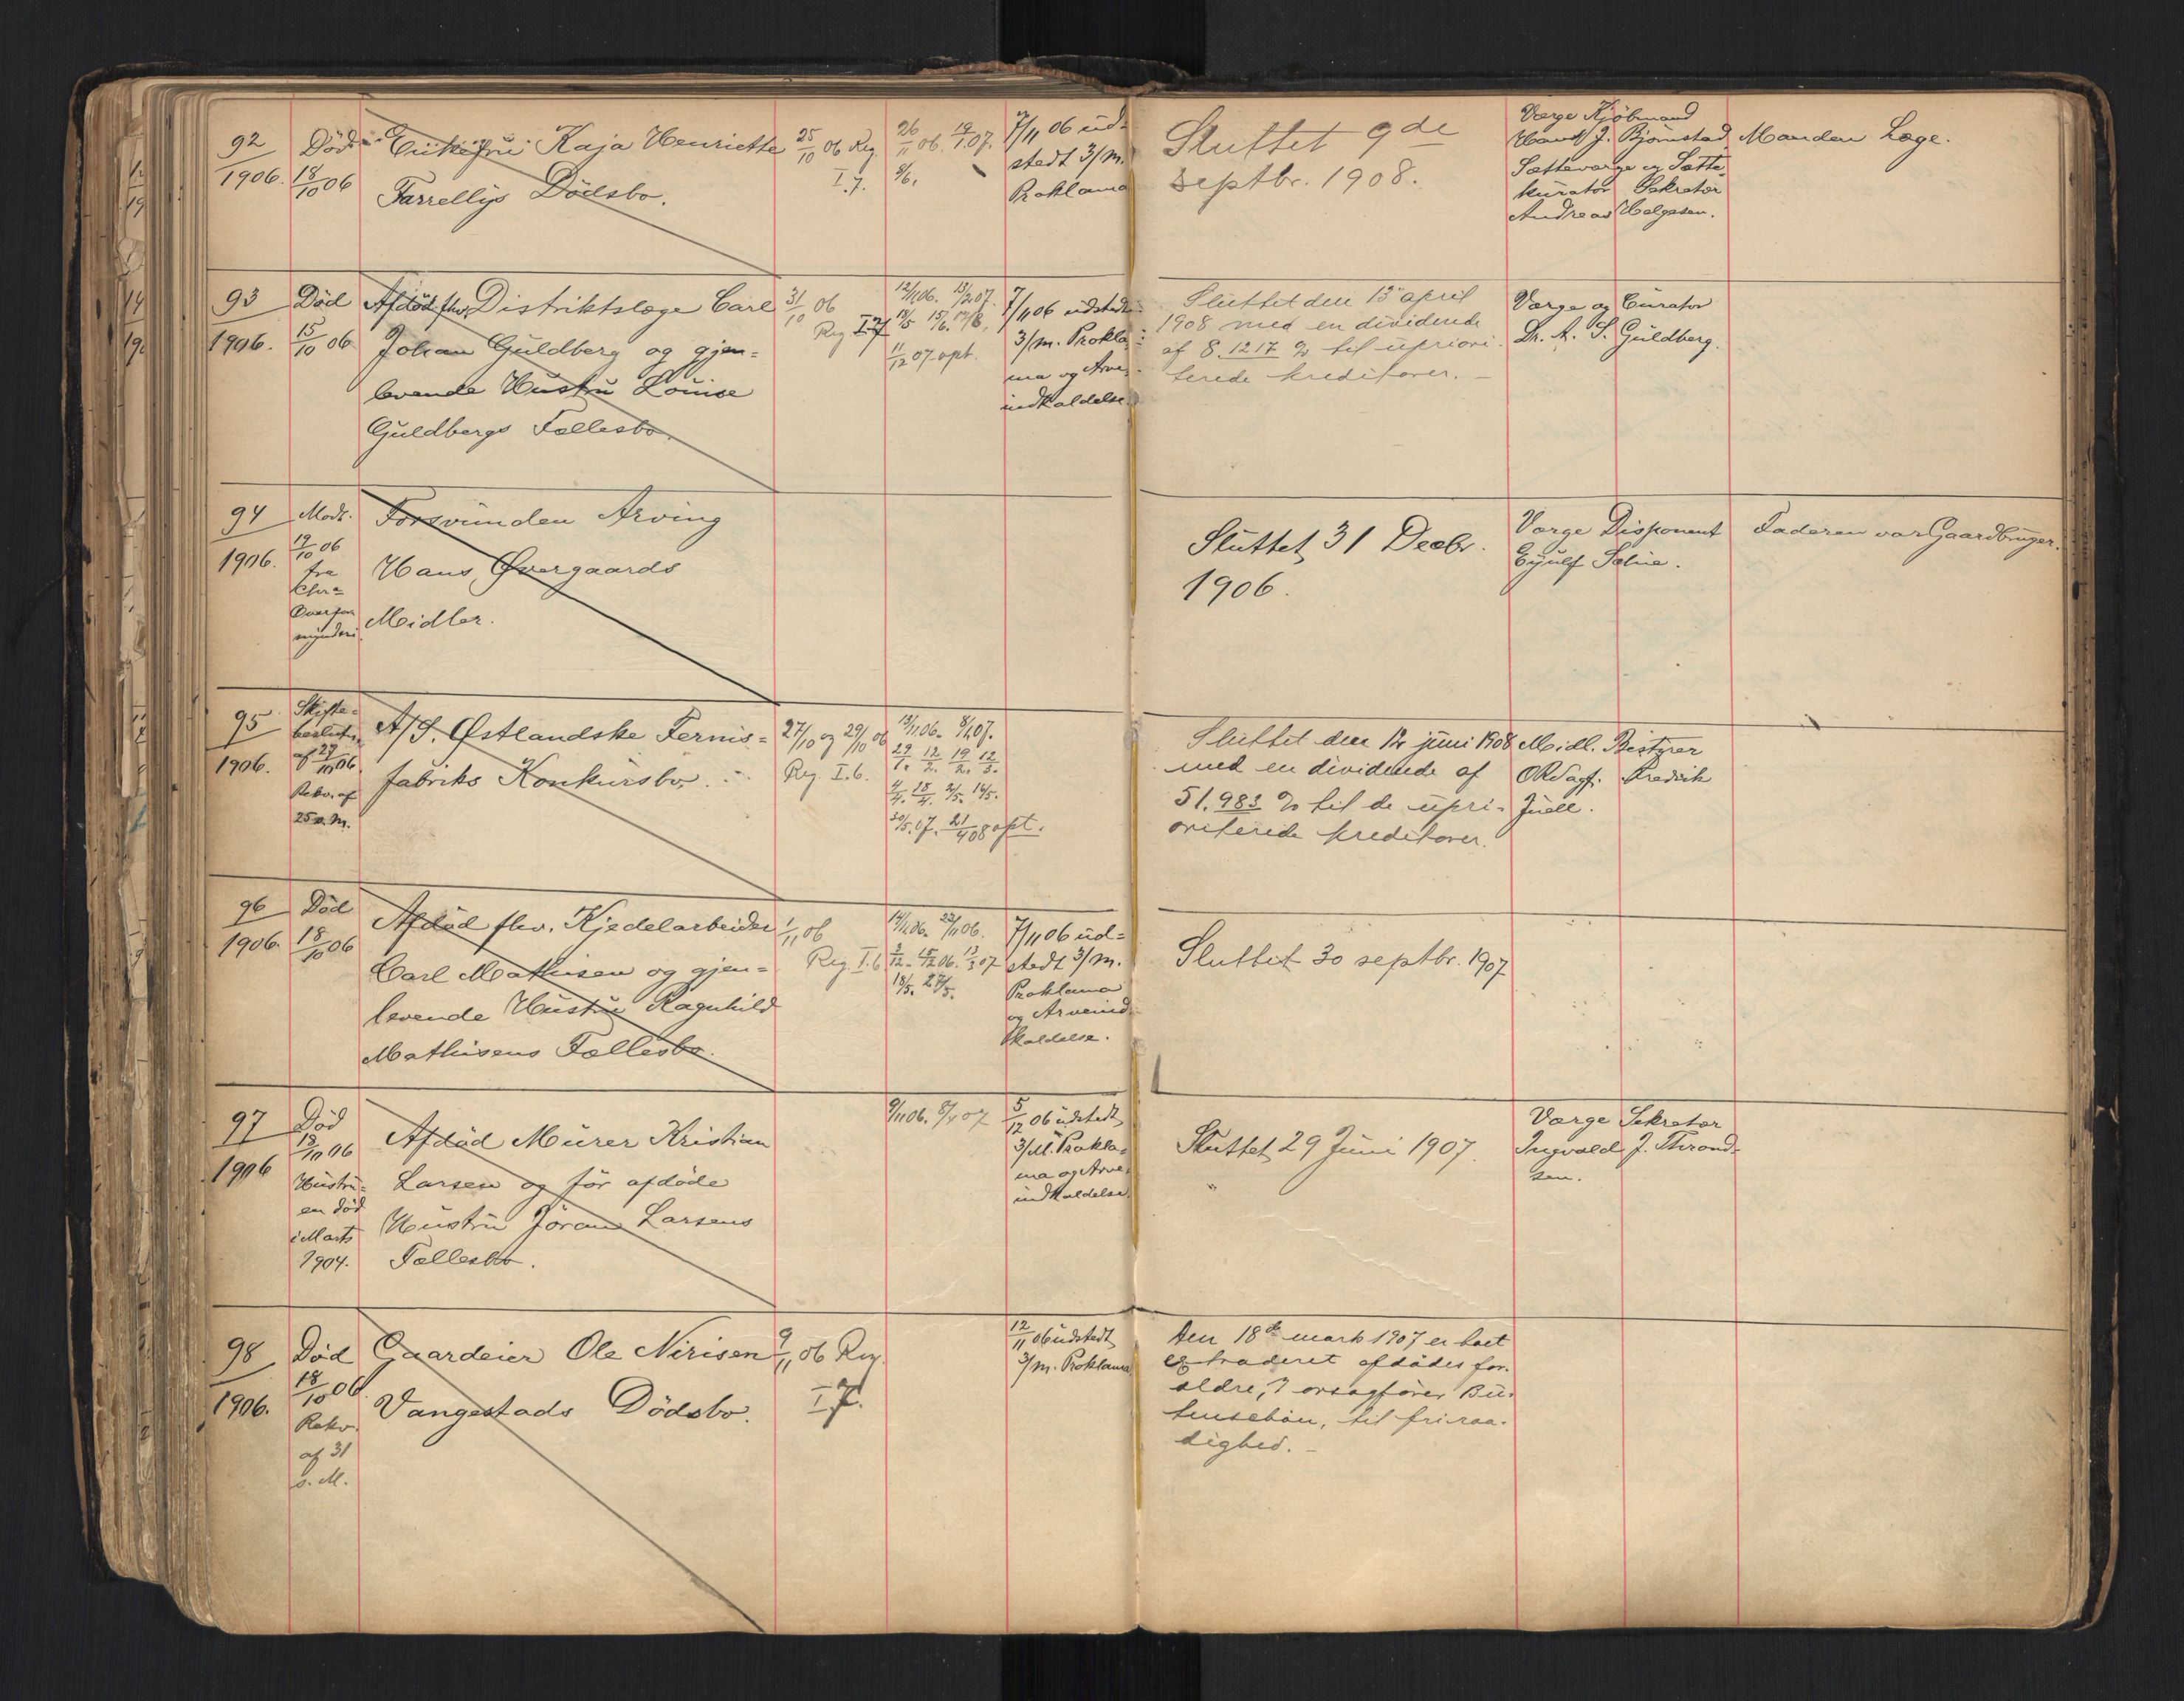 92
1906.
Död
18/10 06
Enkefru Kaja Henriette
Farrellys Dödsbo.
25/10 06 Reg.
I.7.
26/11 06. 19/1 07.
7/11 06 ud-
stedt 3/m.
Proklama
Sluttet 9de
septbr. 1908.
Værge Kjöbmand
Hans J. Björnstad
Sætteværge og Sætte-
kurator Sekretær
Andreas Helgesen.
Manden Læge.
93
1906.
Död
15/10 06
Afdöd fhv. Distriktslæge Carl
Johan Guldberg og gjen-
levende Hustru Louise
Guldbergs Fællesbo.
31/10 06
Reg I.7
12/11 06. 13/2 07.
11/12 07. opt.
7/11 06 udstedt
3/m. Prokla-
ma og Arve-
indkaldelse.
Sluttet den 13 april
1908 med en dividende
af 8.1217 % til upriori-
terede kreditorer. —
Værge og Curator
Dr. A. S. Guldberg.
94
1906.
Modt.
19/10 06
fra
Chr.a
Overfor
mynderi
Forsvunden Arving
Hans Övergaards
Midler.
Sluttet 31 Decbr.
1906.
Værge Disponent
Eyulf Solnie.
Faderen var Gaardbruger.
95
1906.
Skifte-
beslutn.
af 27/10 06.
Rekv. af
25 s. M.
A/S. Østlandske Fernis-
fabriks Konkursbo.
27/10 og 29/10 06
Reg. I.6.
13/11 06. 8/1 07.
29/1. 12/2. 19/2. 12/3.
4/4. 18/4. 2/5. 16/5.
30/5. 07. 21/4 08 opt.
Sluttet den 12 juni 1908
med en dividende af
51.983 % til de upri-
oriterede kreditorer.
Midl. Bestyrer
ORSagf. Fredrik
Juell.
96
1906.
Död
18/10 06
Afdöd fhv. Kjedelarbeider
Carl Mathisen og gjen-
levende Hustru Ragnhild
Mathisens Fællesbo.
1/11 06
Reg. I.6
14/11 06. 22/11 06.
3/12. 15/12 06. 13/3 07
18/5. 27/5.
7/11 06 ud-
stedt 3/m.
Proklama
og Arveind-
kaldelse.
Sluttet 30 septbr. 1907
97
1906
Död
18/10 06
Hustru-
en död
i Marts
1904.
Afdöd Murer Kristian
Larsen og för afdöde
Hustru Jöran Larsens
Fællesbo.
9/11 06. 8/1 07
5/12 06 udstedt
3/M. Prokla-
ma og Arve-
indkaldelse.
Sluttet 29 Juni 1907.
Værge Sekretær
Ingvald J. Thrond-
sen.
98
1906.
Död
18/10 06.
Rekv.
af 31
s. M.
Gaardeier Ole Nirisen
Vangestads Dödsbo.
9/11 06 Reg.
I 7.
12/11 06 udstedt
3/m. Proklama
Den 18de marts 1907 er boet
extraderet afdödes for-
ældre,
til friraa-
dighed. —